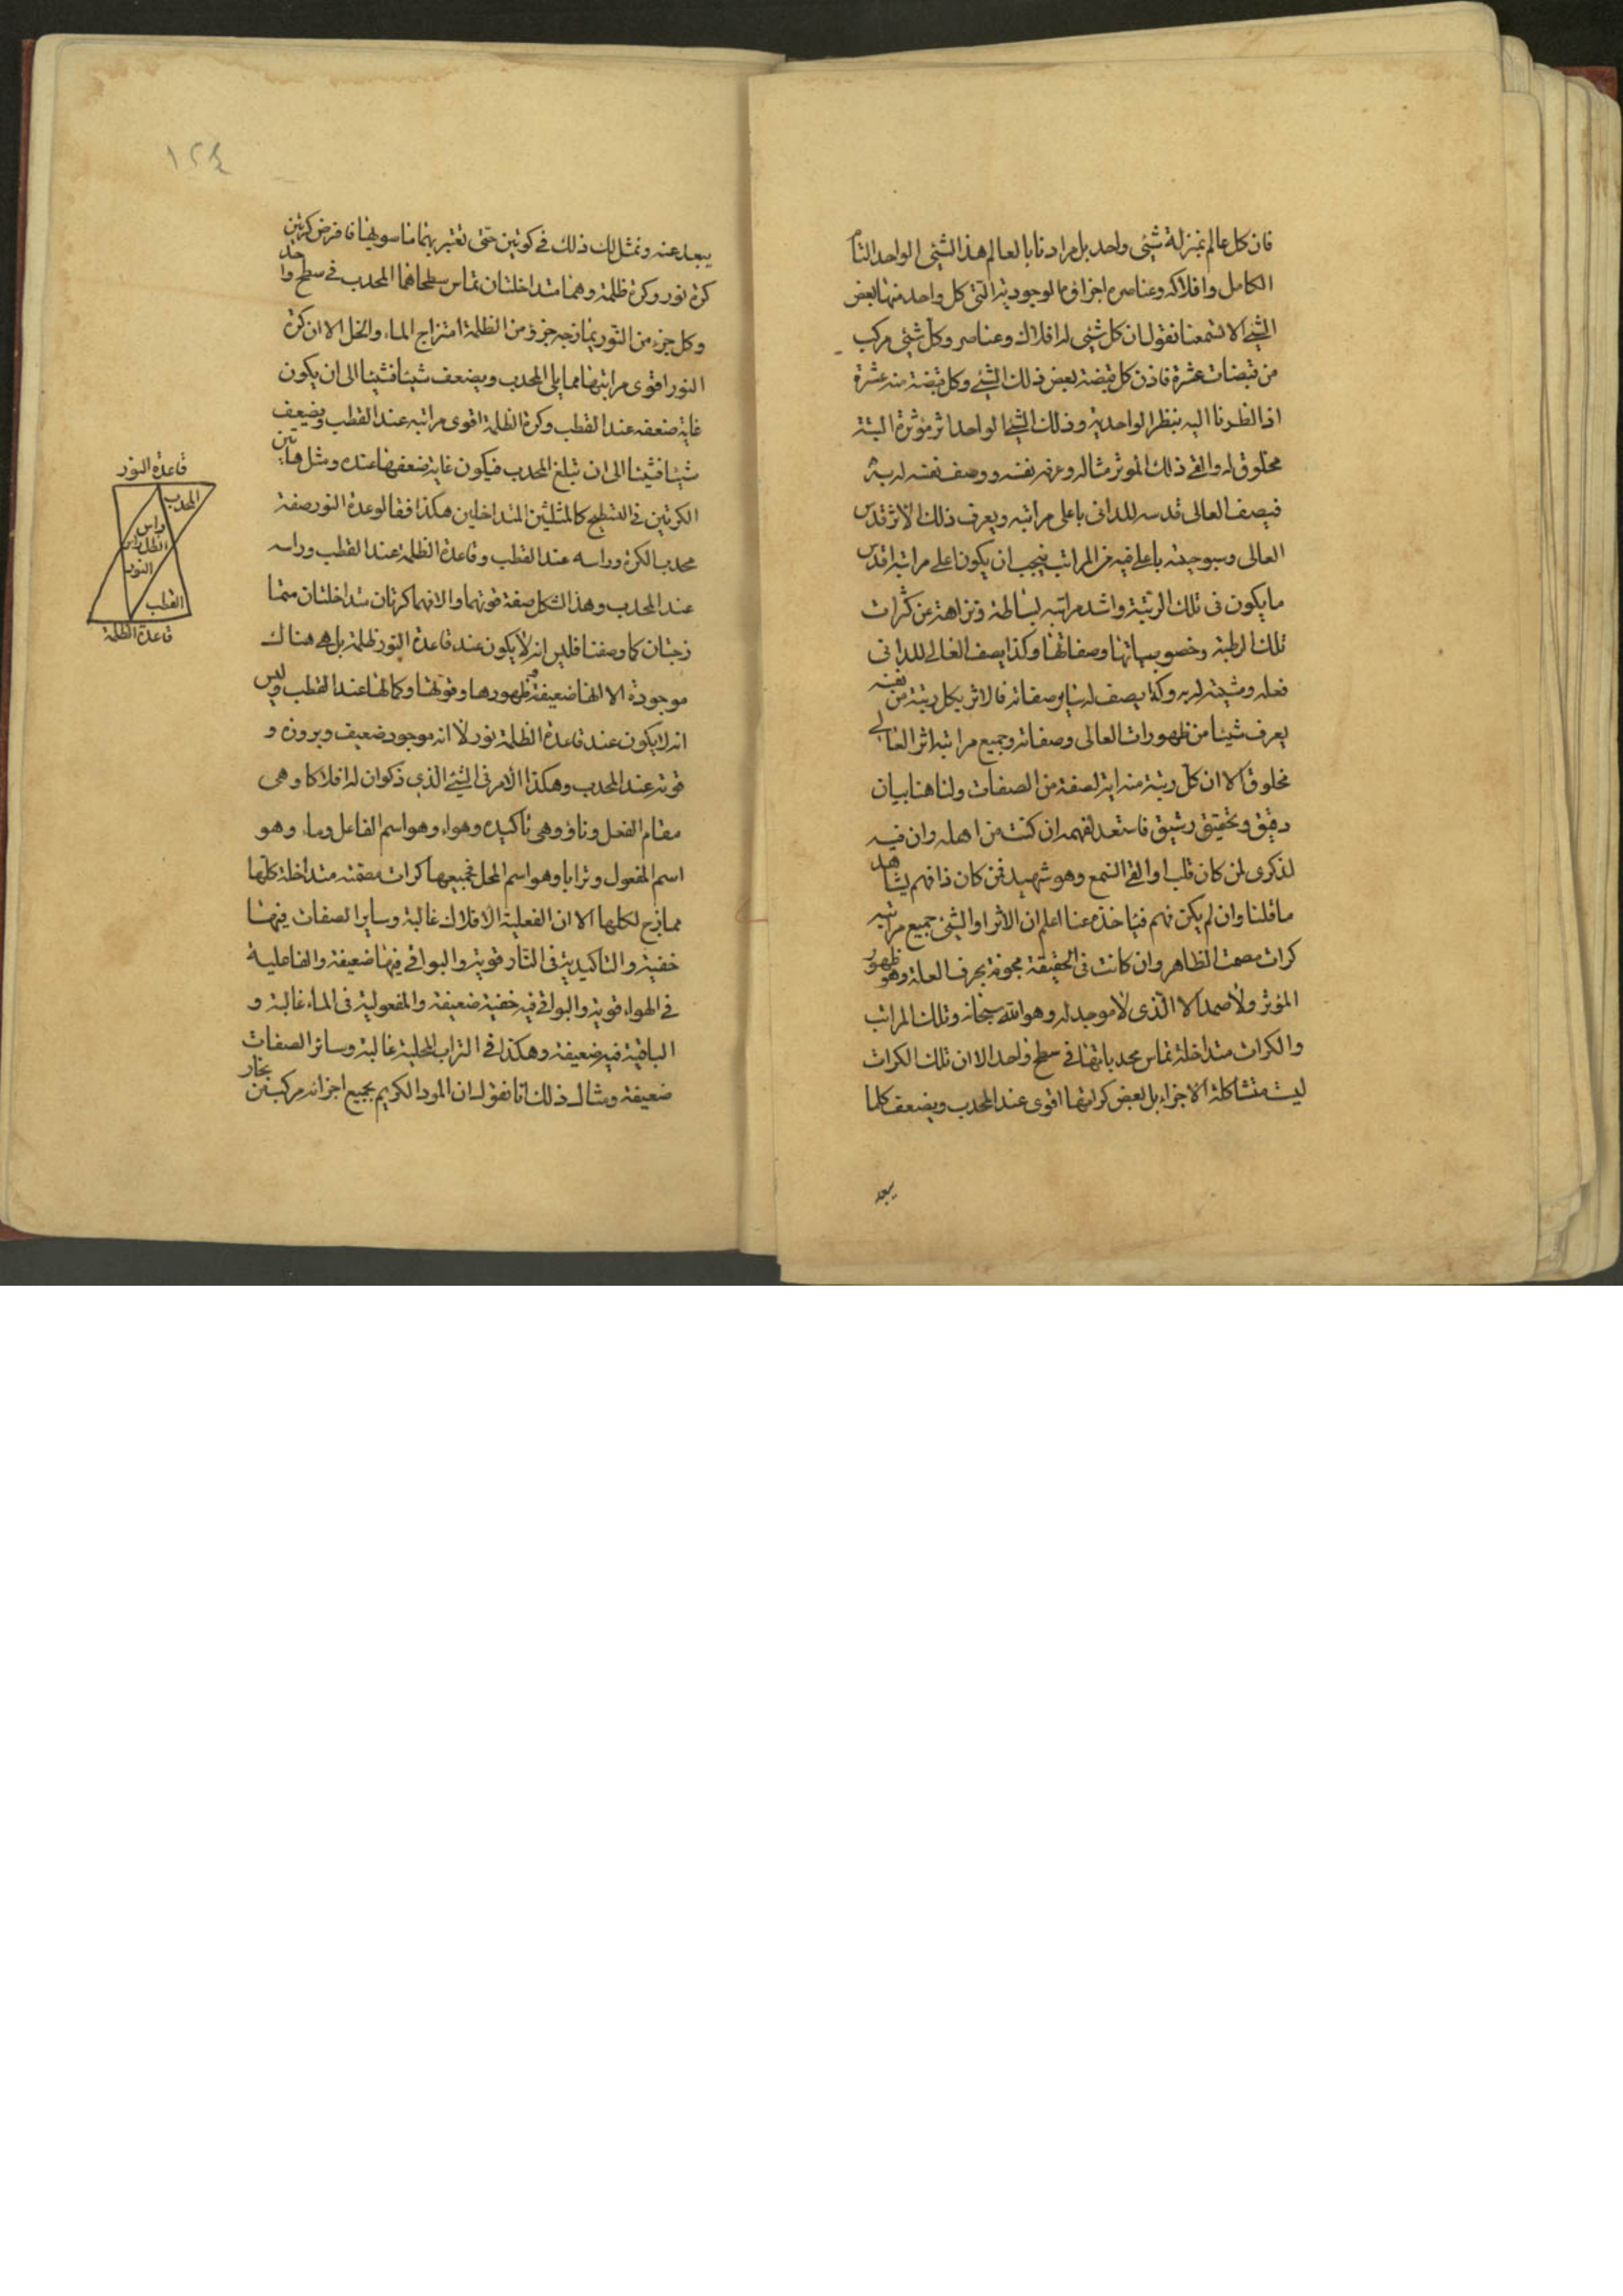 فان كل عالم بمنزلة شیئی واحد بل مرادنا بالعالم هذا الشیئی الواحد التام
الكامل وافلاكه وعناصره اجزاؤه الوجودية التی كل واحد منها بعض
الشیئ الا تسمعنا نقول ان كل شیئی له افلاك وعناصر وكل شیئی مركب
من قبضات عشرة فاذن كل قبضة بعض ذلك الشیئ وكل قبضة منه عشرة
اذا نظرنا اليه بنظر الواحدية وذلك الشیئ الواحد اثر مؤثره البتة
مخلوق له والقی ذلك المؤثر مثاله وعرفه نفسه ووصف نفسه له به
فيصف العالی قدسه للدانی باعلی مراتبه ويعرف ذلك الاثر قدس
العالی وسبوحيته باعلی فيه من المراتب فيجب ان يكون اعلی مراتبه اقدس
ما يكون فی تلك الرتبة واشد مراتبه بساطة ونزاهة عن كثرات
تلك الرتبة وخصوصياتها وصفاتها وكذا يصف العالی للدانی
فعله ومشيته له به وكذا يصف له ساير صفاته فالاثر بكل رتبة من نفسه
يعرف شيئا من ظهورات العالی وصفاته وجميع مراتبه اثر العالی
مخلوق الا ان كل رتبة منه اية لصفة من الصفات ولنا هنا بيان
دقيق وتحقيق رشيق فاستعد لفهمه ان كنت من اهله وان فيه
لذكری لمن كان قلب او القی السمع وهو شهيد فمن كان ذا فهم يشاهد
ما قلنا وان لم يكن فهم فياخذه عنا اعلم ان الاثر او الشیئ جميع مراتبه
كرات مصمت الظاهر وان كانت فی الحقيقة مجوفة بحرف العلة وهو ظهور
المؤثر ولا صمد الا الذی لا موجد له وهو الله سبحانه وتلك المراتب
والكرات متداخلة تماس محدباتها فی سطح واحد الا ان تلك الكرات
ليست متشاكلة الاجزاء بل بعض كراتها اقوی عند المحدب ويضعف كلما
يبعد
١٢٤
يبعد عنه ونمثل لك ذلك فی كرتين حتی تعتبر بهما ما سويهما فافرض كرتين
كرة نور وكرة ظلمة وهما متداخلتان تماس سطحاهما المحدب فی سطح واحد
وكل جزء من النور يمازجه جزؤ من الظلمة امتزاج الماء والخل الا ان كرة
النور اقوی مراتبها مما يلی المحدب ويضعف شيئا فشيئا الی ان يكون
غاية ضعفه عند القطب وكرة الظلمة اقوی مراتبه عند القطب ويضعف
شيئا فشيئا الی ان تبلغ المحدب فيكون غاية ضعفها عنده ومثل هاتين
الكرتين فی التسطيح كالمثلثين المتداخلين هكذا فقالوا عدة النور صفة
محدب الكرة وراسه عند القطب وقاعدة الظلمة عند القطب وراسه
عند المحدب وهذا الشكل صفة قوتهما والا فهما كرتان متداخلتان متما
زجتان كما وصفنا فليس انه لا يكون عند قاعدة النور ظلمة بل هی هناك
موجودة الا انها ضعيفة وظهورها وقوتها وكمالها عند القطب وليس
انه لا يكون عند قاعدة الظلمة نور لا انه موجود ضعيف وبروزه و
قوته عند المحدب وهكذا الامر فی الشیئ الذی ذكروان له افلاكا وهی
مقام الفعل ونارا وهی تاكيده وهواء وهو اسم الفاعل وماء وهو
اسم المفعول وترابا وهو اسم المحل فجميعها كرات مصمتة متداخلة كلها
ممازج لكلها الا ان الفعلية الافلاك غالبة وساير الصفات فيها
خفية والتاكيدية فی النار قوية والبواقی فيها ضعيفة والفاعلية
فی الهواء قوية والبواقی فيه خفية ضعيفة والمفعولية فی الماء غالبة و
الباقية فيه ضعيفة وهكذا فی التراب المحلية غالبة وسائر الصفات
ضعيفة ومثال ذلك انا نقول ان المود الكريم بجميع اجزائه مركب من بخار
قاعدة النور
المحدب
راس
الظل راس
النور
القطب
قاعدة الظلمة